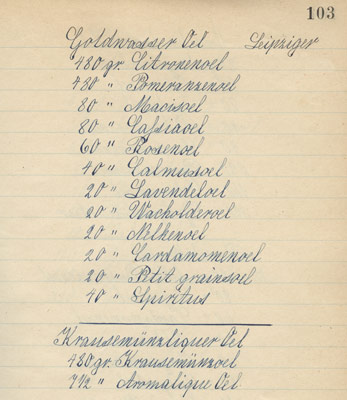 103
Goldwasser Oel Leipziger
480 gr. Citronenoel
480 " Pomeranzenoel
80 " Macisoel
80 " Cassiaoel
60 " Rosenoel
40 " Calmusoel
20 " Lavendeloel
20 " Wacholderoel
20 " Nelkenoel
20 " Cardamomenoel
20 " Petit grainsoel
40 " Spiritus
Krausemünzliqueur Oel
480 gr. Krausemünzoel
7 1/2 " Aromatique Oel.